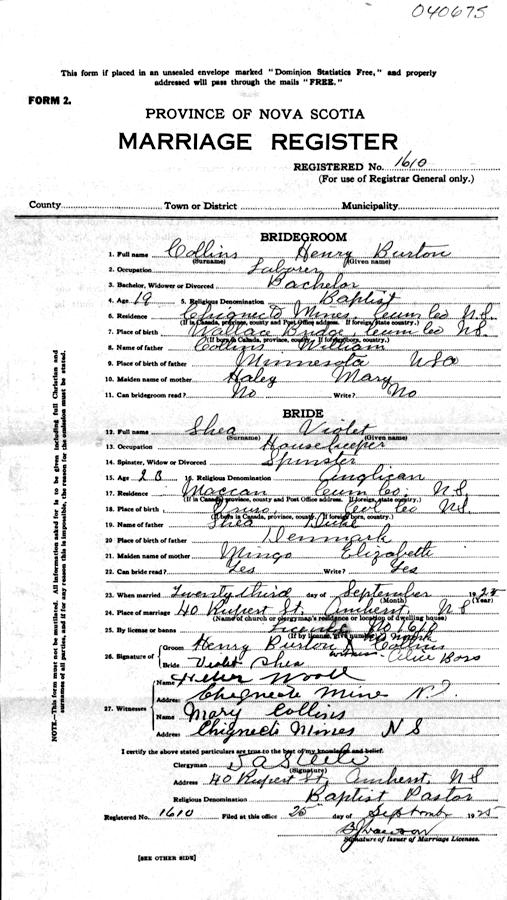 040675
This form if placed in an unsealed envelope marked "Dominion Statistics Free," and properly
addressed will pass through the mails "FREE."
FORM 2.
PROVINCE OF NOVA SCOTIA
MARRIAGE REGISTER
REGISTERED No. 1610
(For use of Registrar General only.)
County Town or District Municipality
BRIDEGROOM
1. Full name Collins Henry Burton
(Surname) (Given name)
2. Occupation Laborer
3. Bachelor, Widower or Divorced Bachelor
4. Age 19 5. Religious Denomination Baptist
6. Residence Chignecto Mines, Cum Co N.S.
(If in Canada, province, county and Post Office address. If foreign, state country.)
7. Place of birth Wallace Bridge, Cum Co NS
(If born in Canada, province, county. If foreign born, country.)
8. Name of father Collins William
9. Place of birth of father Minnesota USA
10. Maiden name of mother Haley Mary
11. Can bridegroom read? No Write? No
BRIDE
12. Full name Shea Violet
(Surname) (Given name)
13. Occupation Housekeeper
14. Spinster, Widow or Divorced Spinster
15. Age 20 16. Religious Denomination Anglican
17. Residence Maccan Cum Co. N.S.
(If in Canada, province, county and Post Office address. If foreign, state country.)
18. Place of birth Truro, Col Co NS.
(If born in Canada, province, county. If foreign born, country.)
19. Name of father Shea
20. Place of birth of father Denmark
21. Maiden name of mother Mingo Elizabeth
22. Can bride read? Yes Write? Yes
23. When married Twenty third day of September 1925
(Month) (Year)
24. Place of marriage 40 Rupert St. Amherst, N S
(Name of church or clergyman's residence or location of dwelling house)
25. By license or banns License No 1610
(If by license, give number)
26. Signature of Groom Henry Burton X Collins
his mark
witness Alice Boss
Bride Violet Shea
27. Witnesses
Name
Address Chignecto Mine N.S.
Name Mary Collins
Address Chignecto Mines N S
I certify the above stated particulars are true to the best of my knowledge and belief.
Clergyman
(Signature)
Address 40 Rupert St, Amherst, NS
Religious Denomination Baptist Pastor
Registered No. 1610 Filed at this office 25 day of September 1925
Signature of Issuer of Marriage Licenses.
[SEE OTHER SIDE]
NOTE.—This form must not be mutilated. All information asked for is to be given including full Christian and
surnames of all parties, and if for any reason this is impossible, the reason for the omission must be stated.